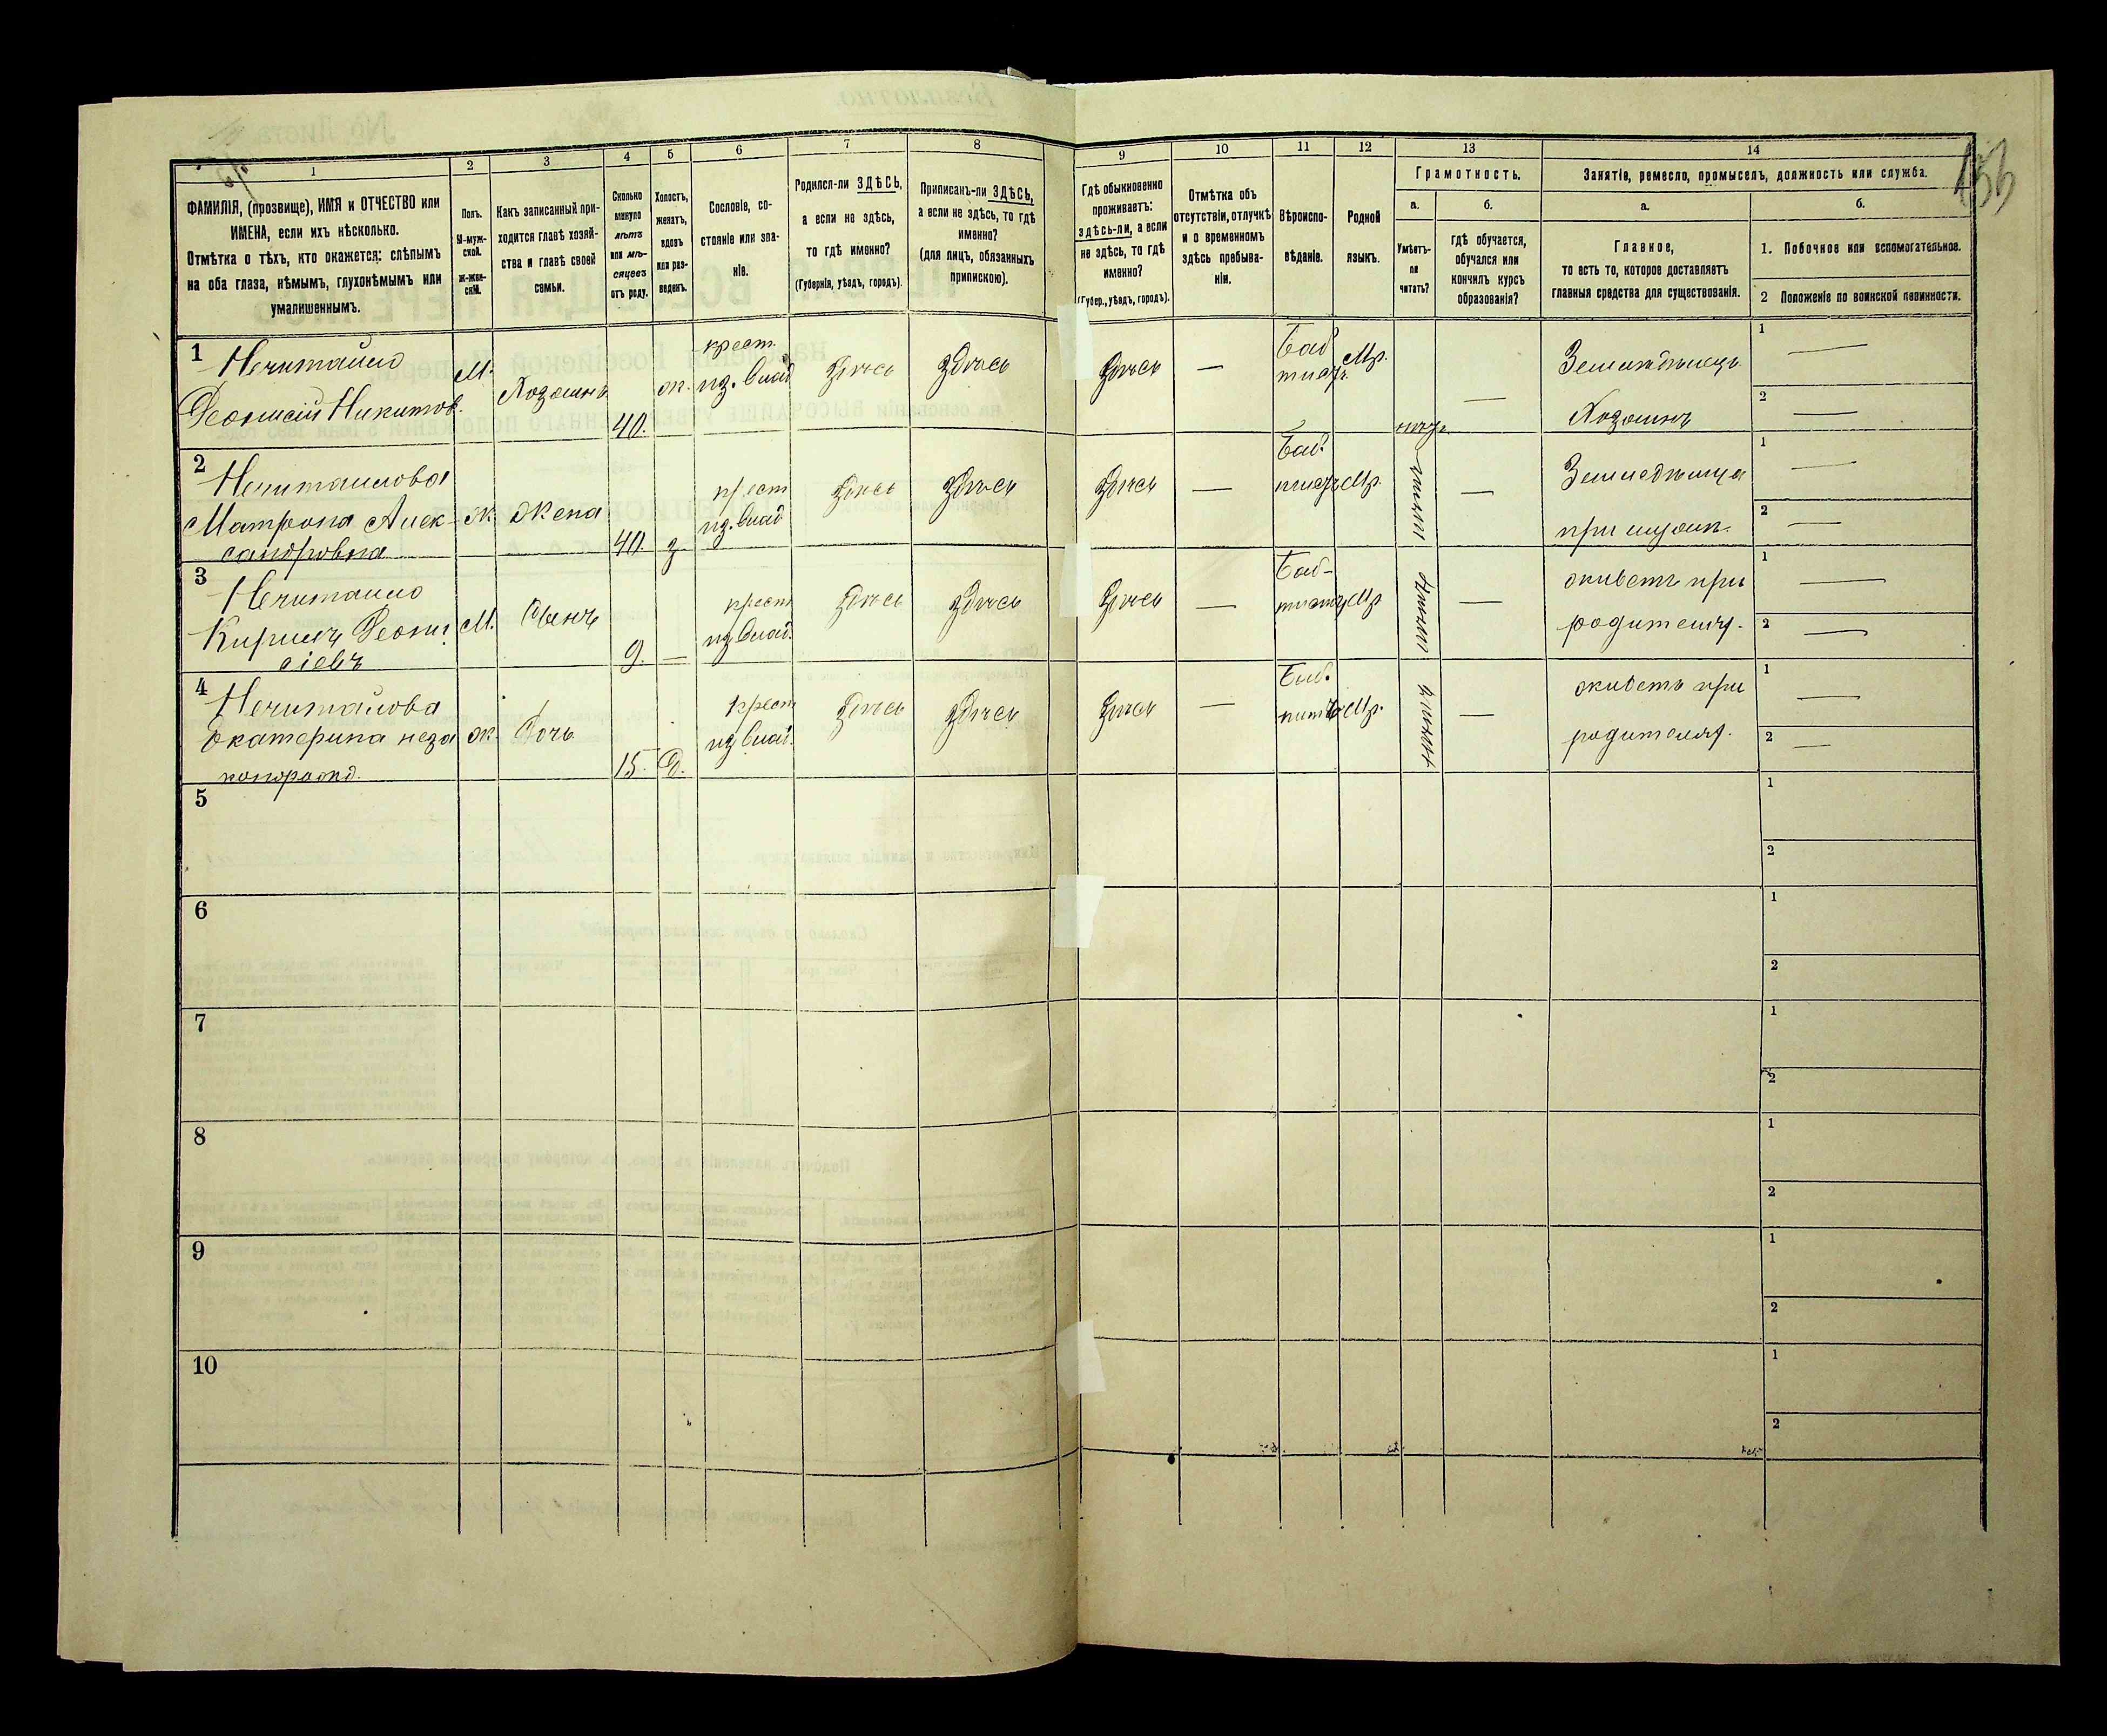 153
1
2
3
4
5
6
7
8
9
10
11
12
13
14
ФАМИЛІЯ, (прозвище), ИМЯ и ОТЧЕСТВО или
ИМЕНА, если ихъ нѣсколько.
Отмѣтка о тѣхъ, кто окажется: слѣпымъ
на оба глаза, нѣмымъ, глухонѣмымъ или
умалишеннымъ.
Полъ.
М-муж-
ской.
Ж-жен-
скій.
Какъ записанный при-
ходится главѣ хозяй-
ства и главѣ своей
семьи.
Сколько
минуло
лѣтъ
или мѣ-
сяцевъ
отъ роду.
Холостъ,
женатъ,
вдовъ
или раз-
веденъ.
Сословіе, со-
стояніе или зва-
ніе.
Родился-ли ЗДѢСЬ,
а если не здѣсь,
то гдѣ именно?
(Губернія, уѣздъ, городъ).
Приписанъ-ли ЗДѢСЬ,
а если не здѣсь, то гдѣ
именно?
(для лицъ, обязанныхъ
припискою).
Гдѣ обыкновенно
проживаетъ:
здѣсь-ли, а если
не здѣсь, то гдѣ
именно?
(Губер., уѣздъ, городъ).
Отмѣтка объ
отсутствіи, отлучкѣ
и о временномъ
здѣсь пребыва-
ніи.
Вѣроиспо-
вѣданіе.
Родной
языкъ.
Грамотность.
а.
Умѣетъ-
ли
читать?
б.
гдѣ обучается,
обучался или
кончилъ курсъ
образованія?
Занятіе, ремесло, промыселъ, должность или служба.
а.
Главное,
то есть то, которое доставляетъ
главныя средства для существованія.
б.
1. Побочное или вспомогательное.
2 Положеніе по воинской повинности.
1
Нечитайло
Деонисій Никитов.
М.
Хозяинъ
40.
ж.
крест.
из. влад
здѣсь
здѣсь
здѣсь
—
Баб
тистъ.
Мр.
нѣтъ
—
Земледѣлецъ.
Хозяинъ
1 —
2 —
2
Нечитайлова
Матрона Алек-
сандровна
Ж.
Жена
40
з.
крест
из. влад
здѣсь
здѣсь
здѣсь
—
Баб.
тистъ
Мр.
—
Земледѣлица
при
1 —
2 —
3
Нечитайло
Кирилъ Деони
сіевъ
М.
Сынъ
9.
—
крест
из влад.
здѣсь
здѣсь
здѣсь
—
Баб-
тистъ
Мр
—
живетъ при
родителяхъ.
1 —
2 —
4
Нечитайлова
Екатерина неза
конорожд.
ж.
Дочь
15.
Д.
крест
из влад.
здѣсь
здѣсь
здѣсь
—
Баб.
Мр.
—
живетъ при
родителях.
1 —
2 —
5
1
2
6
1
2
7
1
2
8
1
2
9
1
2
10
1
2